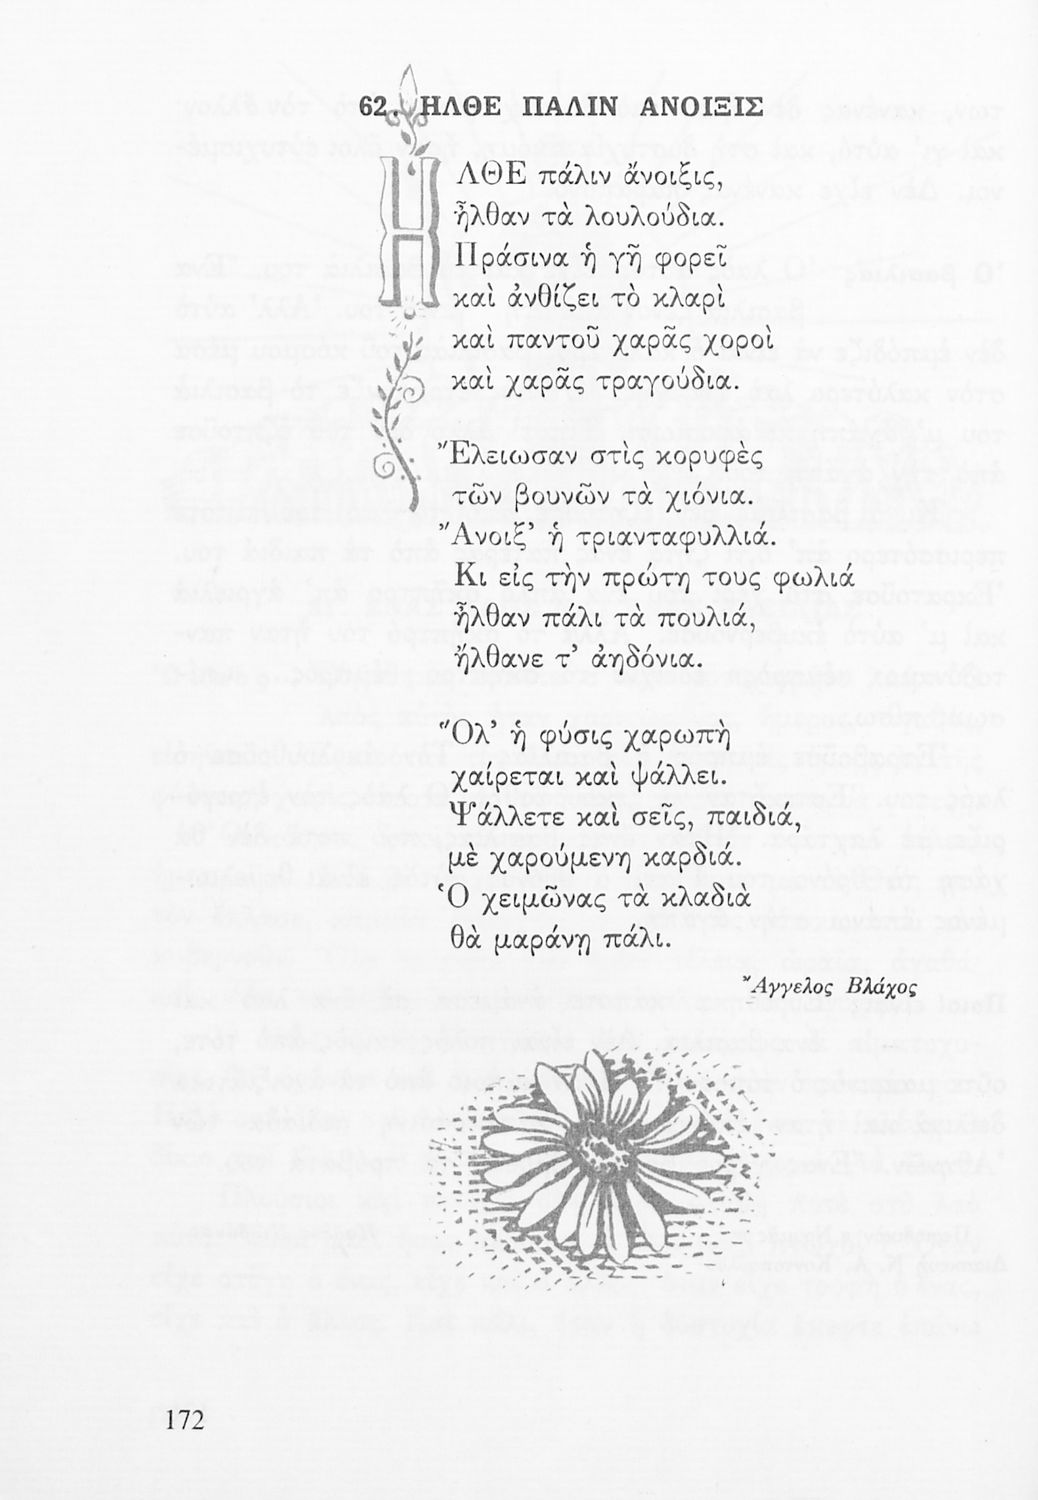 62. ΗΛΘΕ ΠΑΛΙΝ ΑΝΟΙΞΙΣ
ΗΛΘΕ πάλιν ἄνοιξις,
ἦλθαν τὰ λουλούδια.
Πράσινα ἡ γῆ φορεῖ
καὶ ἀνθίζει τὸ κλαρὶ
καὶ παντοῦ χαρᾶς χοροὶ
καὶ χαρᾶς τραγούδια.
Ἔλειωσαν στὶς κορυφὲς
τῶν βουνῶν τὰ χιόνια.
Ἄνοιξ’ ἡ τριανταφυλλιά.
Κι εἰς τὴν πρώτη τους φωλιά
ἦλθαν πάλι τὰ πουλιά,
ἤλθανε τ’ ἀηδόνια.
Ὅλ’ ἡ φύσις χαρωπὴ
χαίρεται καὶ ψάλλει.
Ψάλλετε καὶ σεῖς, παιδιά,
μὲ χαρούμενη καρδιά.
Ὁ χειμῶνας τὰ κλαδιὰ
θὰ μαράνῃ πάλι.
Ἄγγελος Βλάχος
172